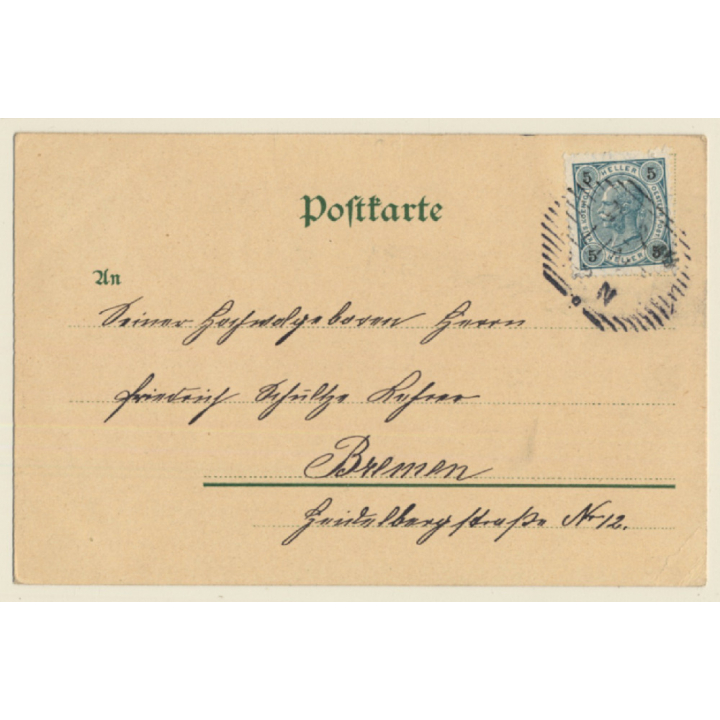 Postkarte
An
5 HELLER 5
5 HELLER 5
Seiner Hochwolgeboren Herrn
Friedrich Schultze Lehrer
Bremen
Heidelbergstraße Nr 12.